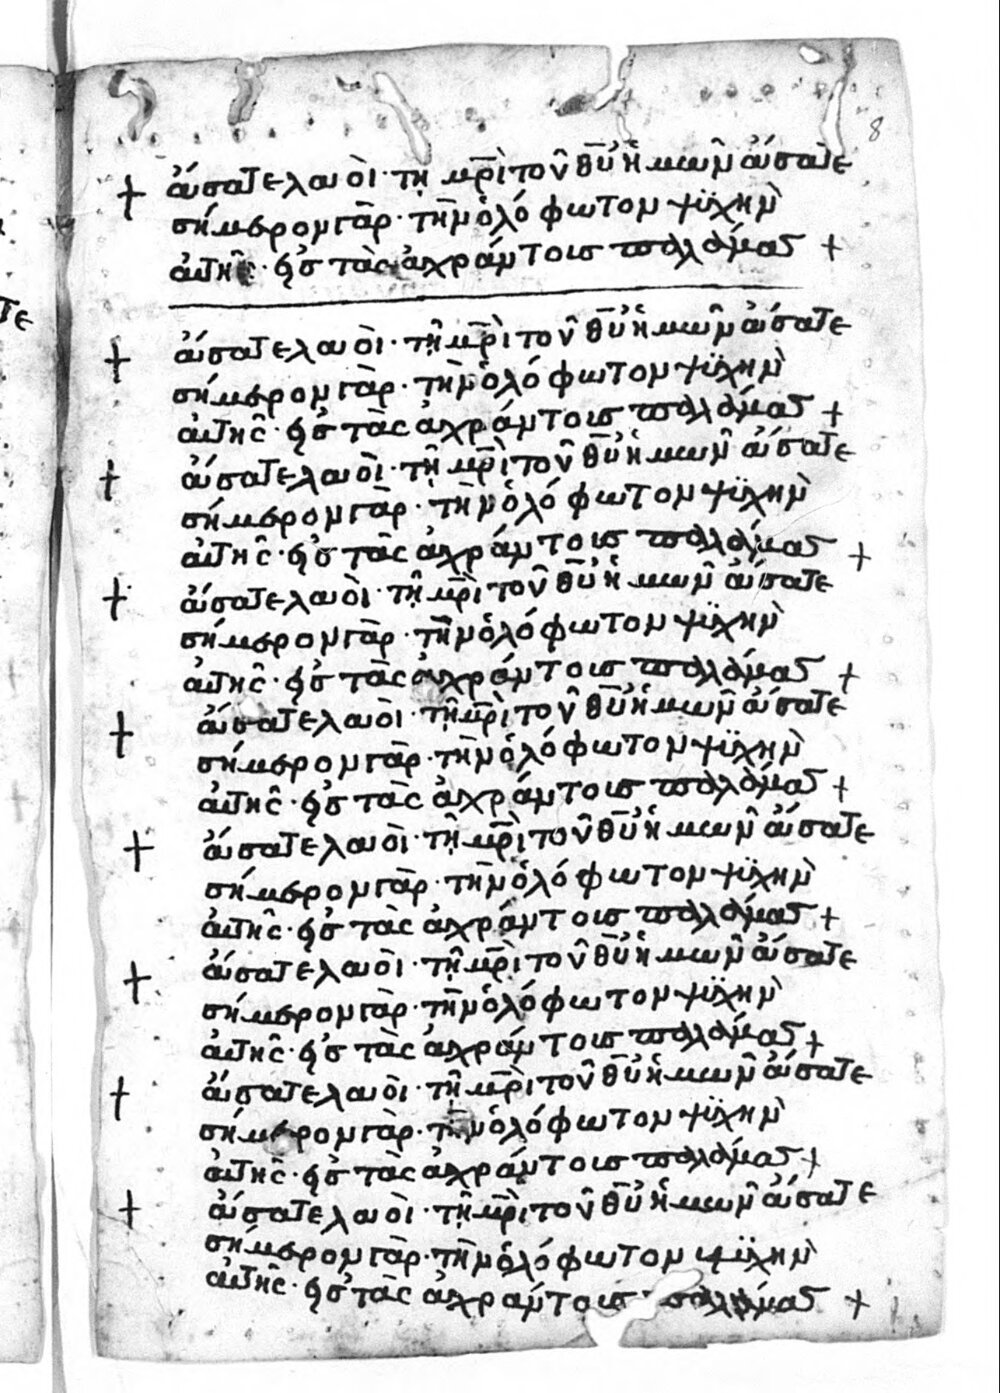 8
+ ἄσατε λαοὶ · τῇ μ̅ρ̅ὶ τοῦ θ̅υ̅ ἡμῶν ἄσατε
σήμερον γὰρ · τὴν ὁλόφωτον ψϋχὴν
αὐτῆς · εἰς τὰς ἀχράντοις παλάμας +
+ ἄσατε λαοὶ · τῇ μ̅ρ̅ὶ τοῦ θ̅υ̅ ἡμῶν ἄσατε
σήμερον γὰρ · τὴν ὁλόφωτον ψϋχὴν
αὐτῆς · εἰς τὰς ἀχράντοις παλάμας +
+ ἄσατε λαοὶ · τῇ μ̅ρ̅ὶ τοῦ θ̅υ̅ ἡμῶν ἄσατε
σήμερον γὰρ · τὴν ὁλόφωτον ψϋχὴν
αὐτῆς · εἰς τὰς ἀχράντοις παλάμας +
+ ἄσατε λαοὶ · τῇ μ̅ρ̅ὶ τοῦ θ̅υ̅ ἡμῶν ἄσατε
σήμερον γὰρ · τὴν ὁλόφωτον ψϋχὴν
αὐτῆς · εἰς τὰς ἀχράντοις παλάμας +
+ ἄσατε λαοὶ · τῇ μ̅ρ̅ὶ τοῦ θ̅υ̅ ἡμῶν ἄσατε
σήμερον γὰρ · τὴν ὁλόφωτον ψϋχὴν
αὐτῆς · εἰς τὰς ἀχράντοις παλάμας +
+ ἄσατε λαοὶ · τῇ μ̅ρ̅ὶ τοῦ θ̅υ̅ ἡμῶν ἄσατε
σήμερον γὰρ · τὴν ὁλόφωτον ψϋχὴν
αὐτῆς · εἰς τὰς ἀχράντοις παλάμας +
+ ἄσατε λαοὶ · τῇ μ̅ρ̅ὶ τοῦ θ̅υ̅ ἡμῶν ἄσατε
σήμερον γὰρ · τὴν ὁλόφωτον ψϋχὴν
αὐτῆς · εἰς τὰς ἀχράντοις παλάμας +
+ ἄσατε λαοὶ · τῇ μ̅ρ̅ὶ τοῦ θ̅υ̅ ἡμῶν ἄσατε
σήμερον γὰρ · τὴν ὁλόφωτον ψϋχὴν
αὐτῆς · εἰς τὰς ἀχράντοις παλάμας +
+ ἄσατε λαοὶ · τῇ μ̅ρ̅ὶ τοῦ θ̅υ̅ ἡμῶν ἄσατε
σήμερον γὰρ · τὴν ὁλόφωτον ψϋχὴν
αὐτῆς · εἰς τὰς ἀχράντοις παλάμας +